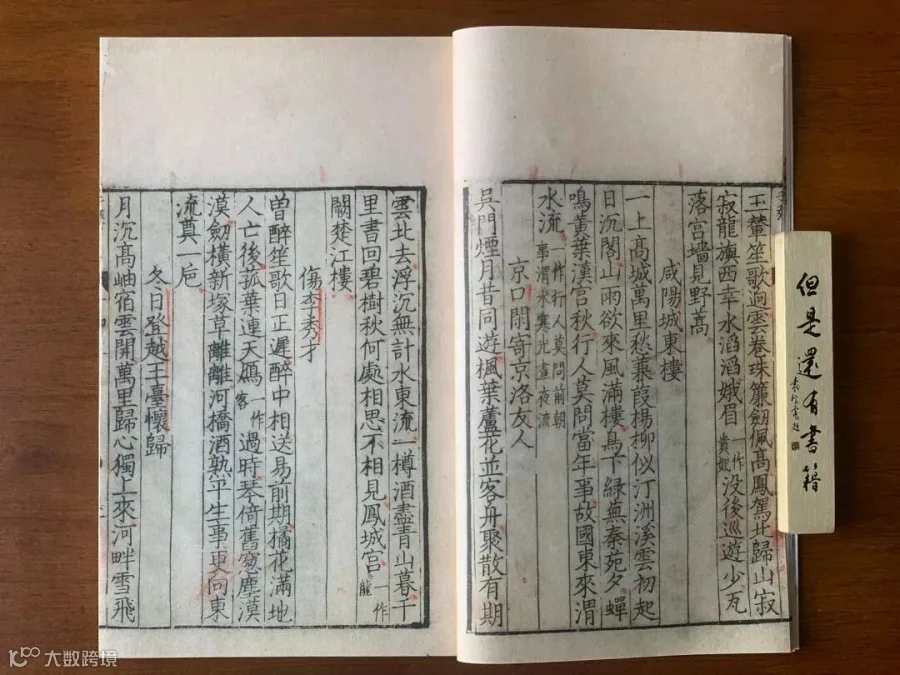 玉輦笙歌逈雲卷珠簾劒佩高鳳駕北歸山寂
寂龍旗西幸水滔滔娥眉一作貴妃没後巡遊少瓦
落宮墻見野蒿
咸陽城東樓
一上高城萬里愁蒹葭楊柳似汀洲溪雲初起
日沉閣山雨欲來風滿樓鳥下綠蕪秦苑夕蟬
鳴黃葉漢宮秋行人莫問當年事故國東來渭
水流一作行人莫問前朝事渭水寒光晝夜流
京口閑寄京洛友人
吳門煙月昔同遊楓葉蘆花並客舟聚散有期
雲北去浮沉無計水東流一樽酒盡青山暮千
里書回碧樹秋何處相思不相見鳳城宮一作龍
闕楚江樓
傷李秀才
曽醉笙歌日正遲醉中相送易前期橘花滿地
人亡後菰葉連天鴈一作客過時琴倚舊窓塵漠
漠劒橫新塚草離離河橋酒熟平生事更向東
流奠一巵
冬日登越王臺懷歸
月沉高岫宿雲開萬里歸心獨上來河畔雪飛
但是還有書籍
大数跨境